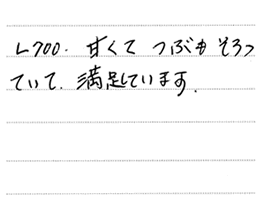 L700. 甘くて つぶも そろっ
ていて、満足しています。